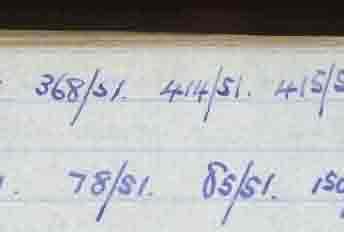 368/51. 414/51. 415/5
78/51. 85/51. 150